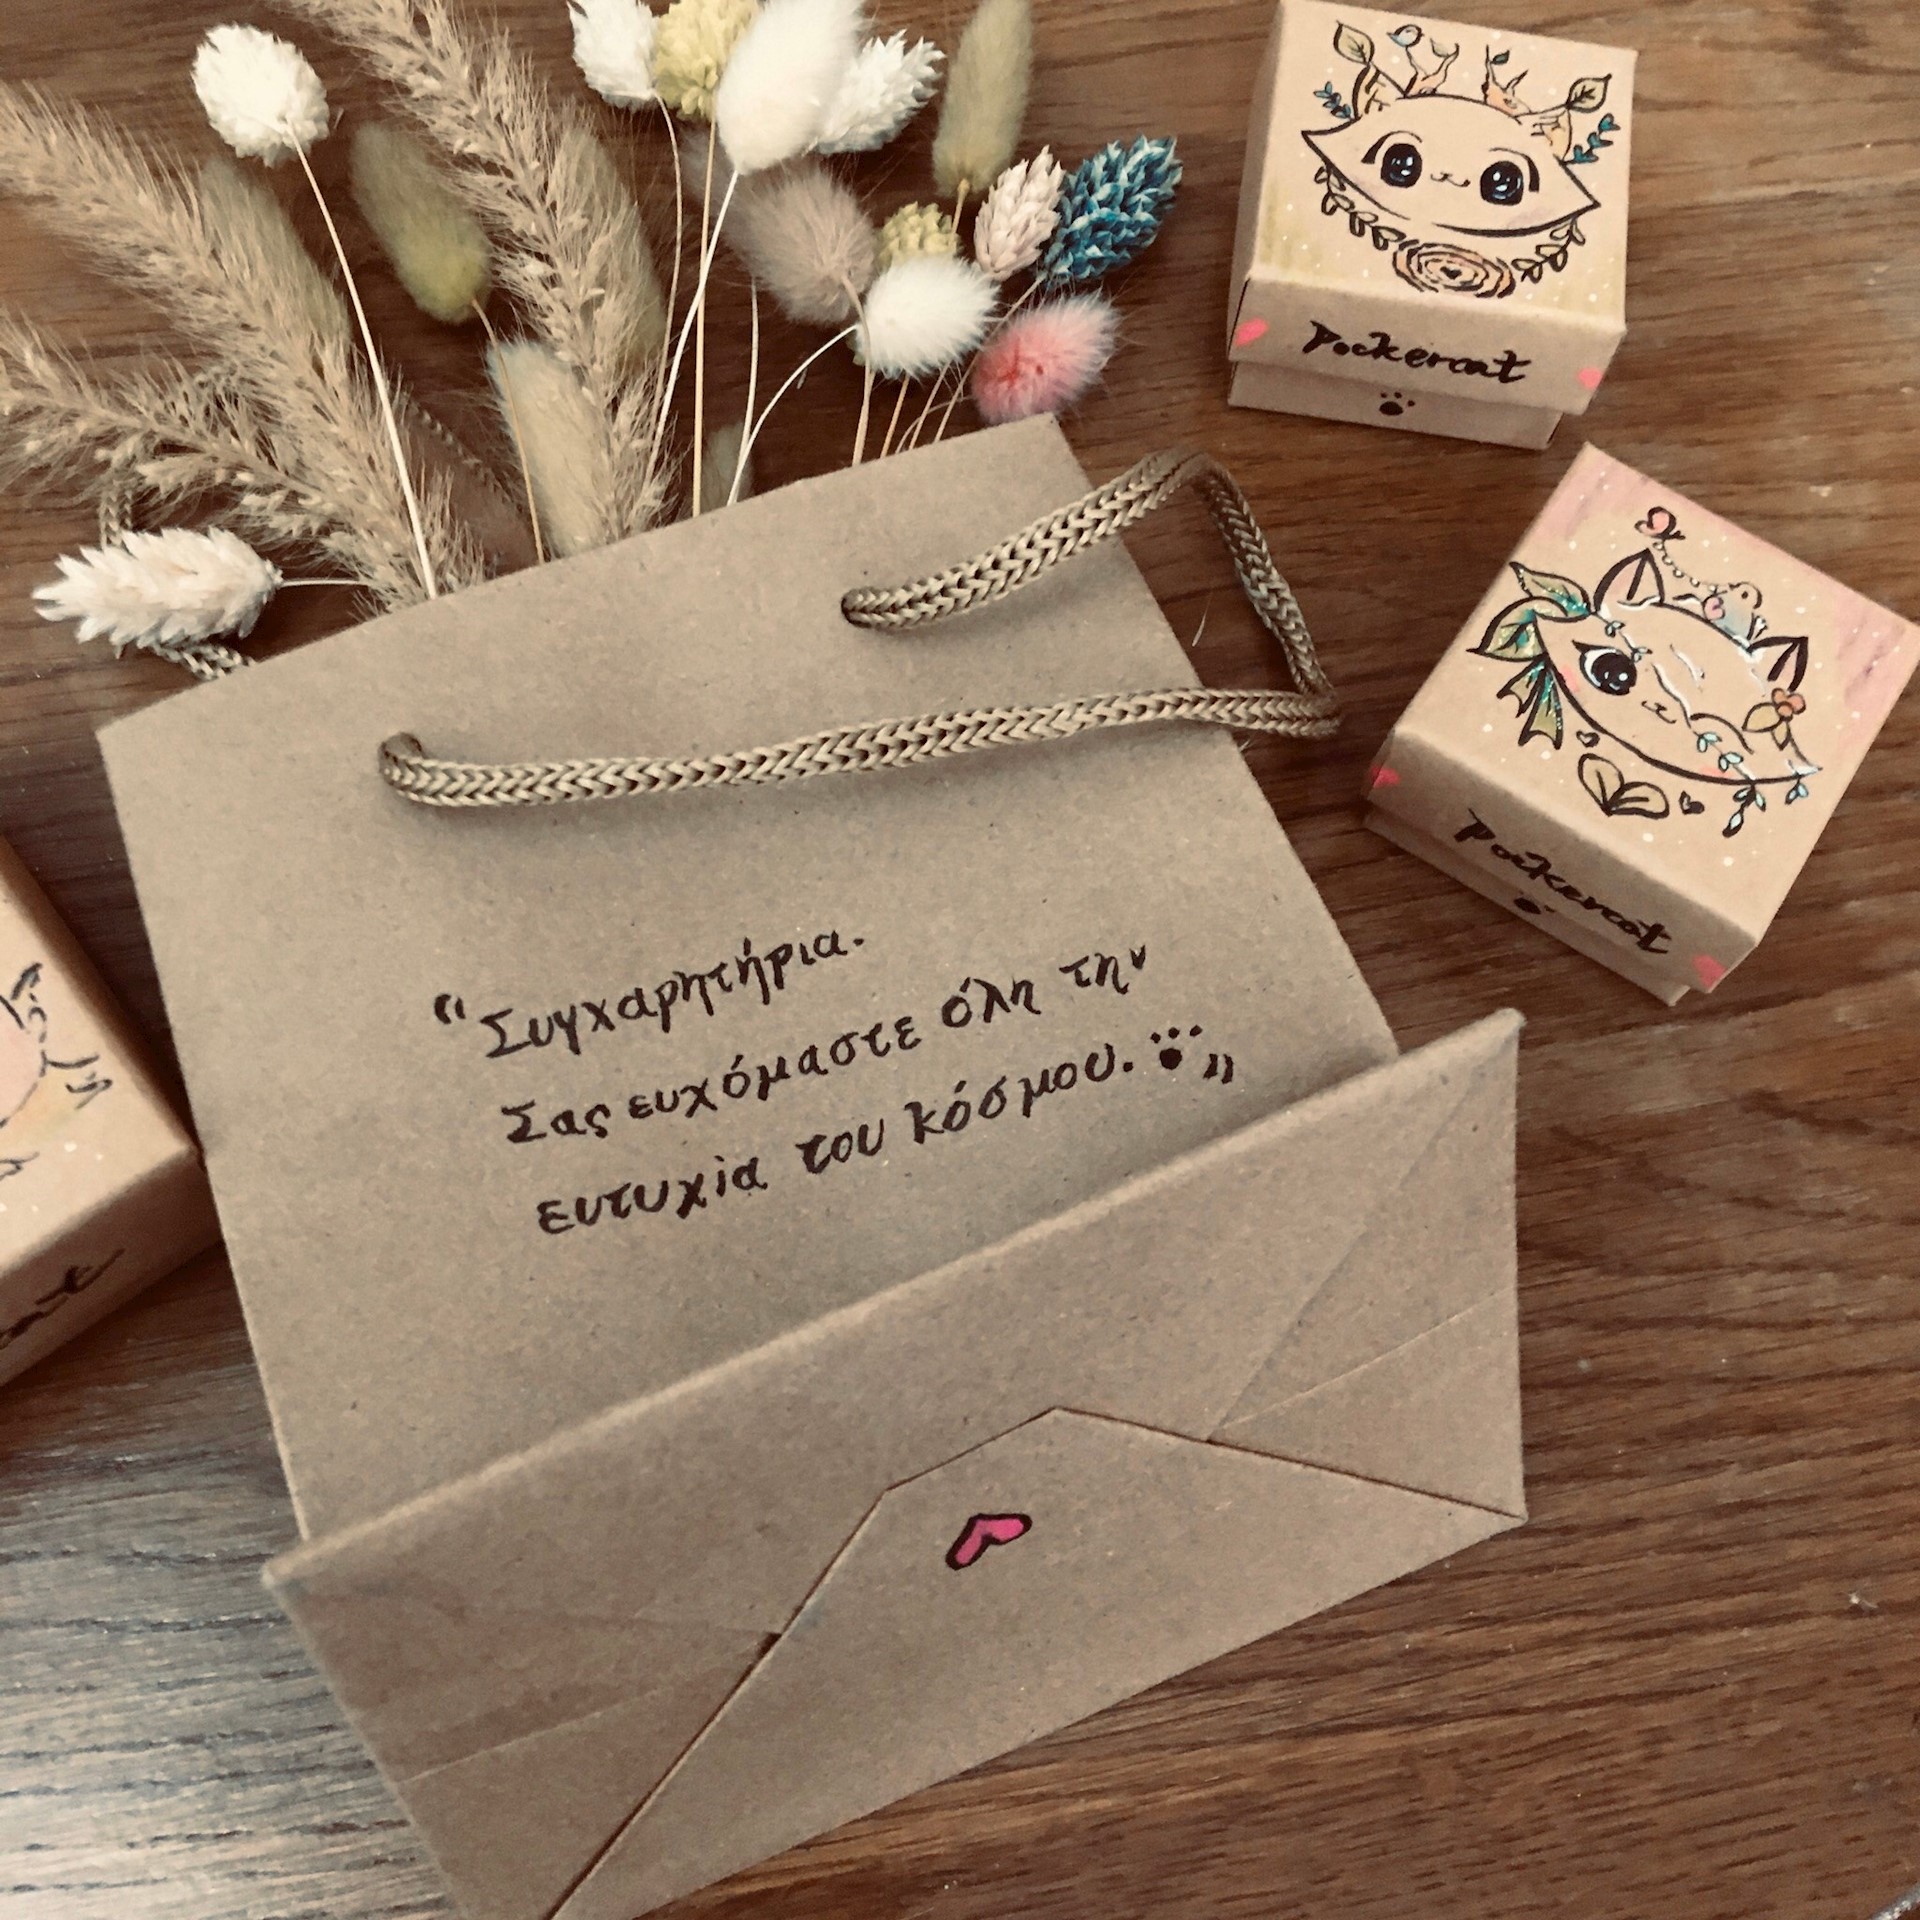 Pockercat
Pockercat
“Συγχαρητήρια.
Σας ευχόμαστε όλη την
ευτυχία του κόσμου. „